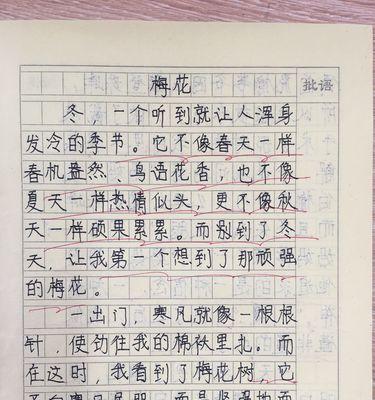 梅花
批语
冬，一个听到就让人浑身
发冷的季节。它不像春天一样
春机盎然、鸟语花香，也不像
夏天一样热情似头，更不像秋
天一样硕果累累。而别到了冬
天，让我第一个想到了那顽强
的梅花。
一出门，寒风就像一根根
针，使劲往我的棉秋里扎。而
在这时，我看到了梅花树，它